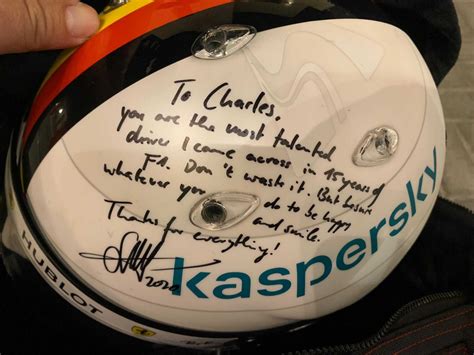 To Charles,
you are the most talented
driver I came across in 15 years of
F1. Don't waste it. But besure
whatever you do to be happy
and smile.
Thanks for everything!
2020
kaspersky
HUBLOT